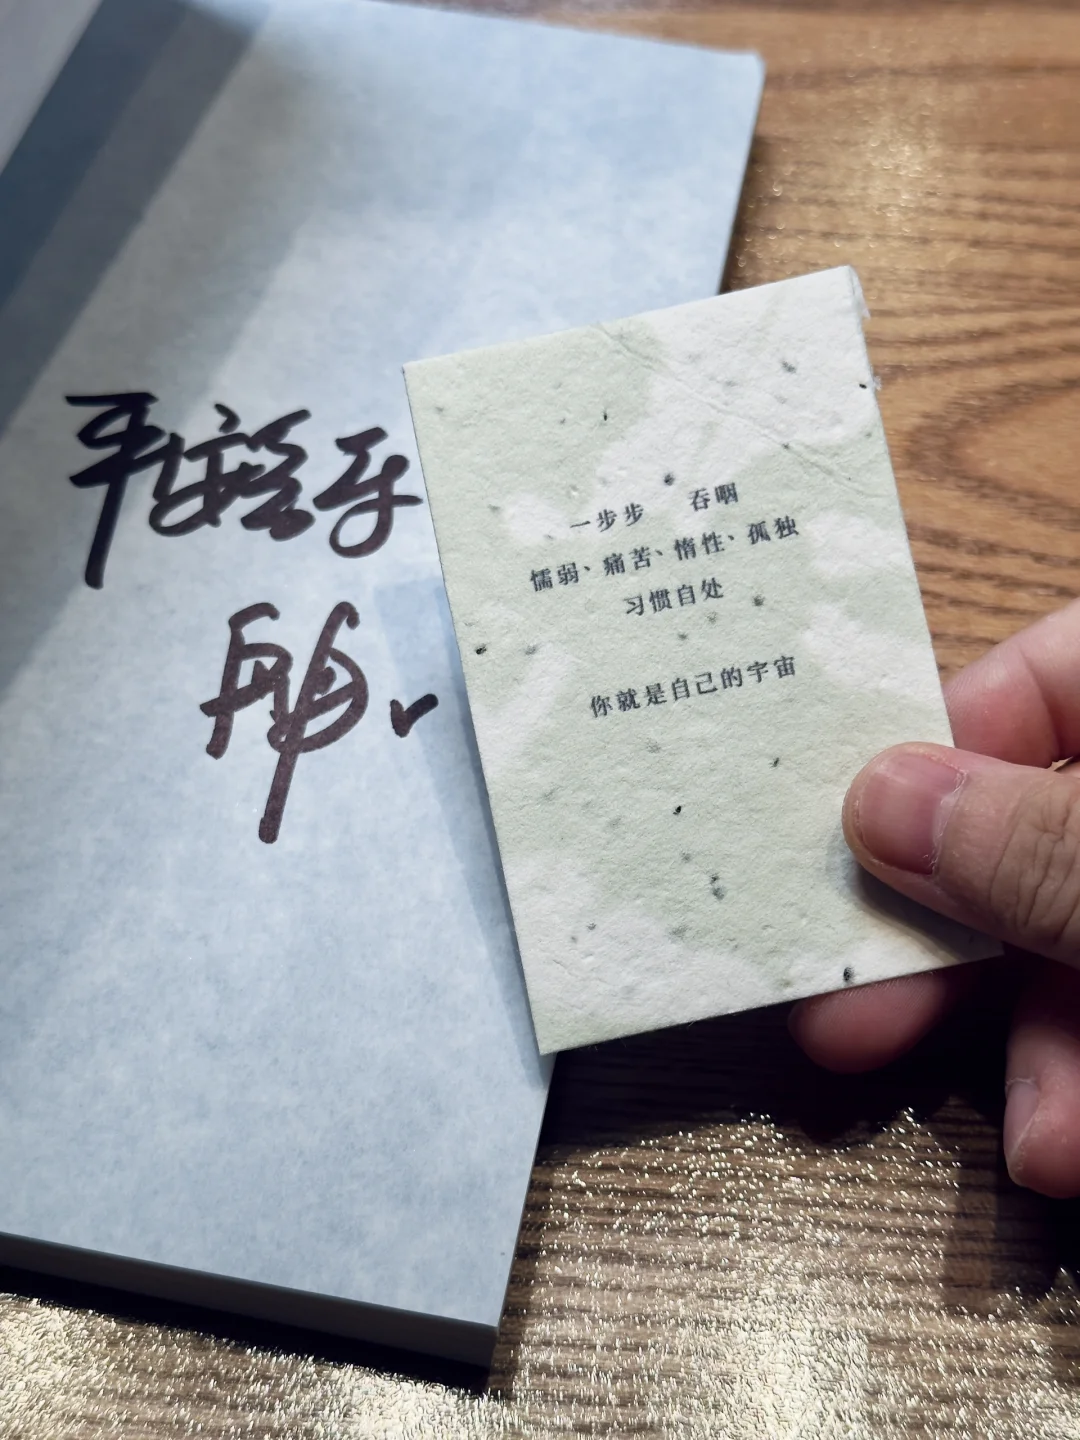 平安喜乐
一步步 吞咽
懦弱、痛苦、惰性、孤独
习惯自处
你就是自己的宇宙